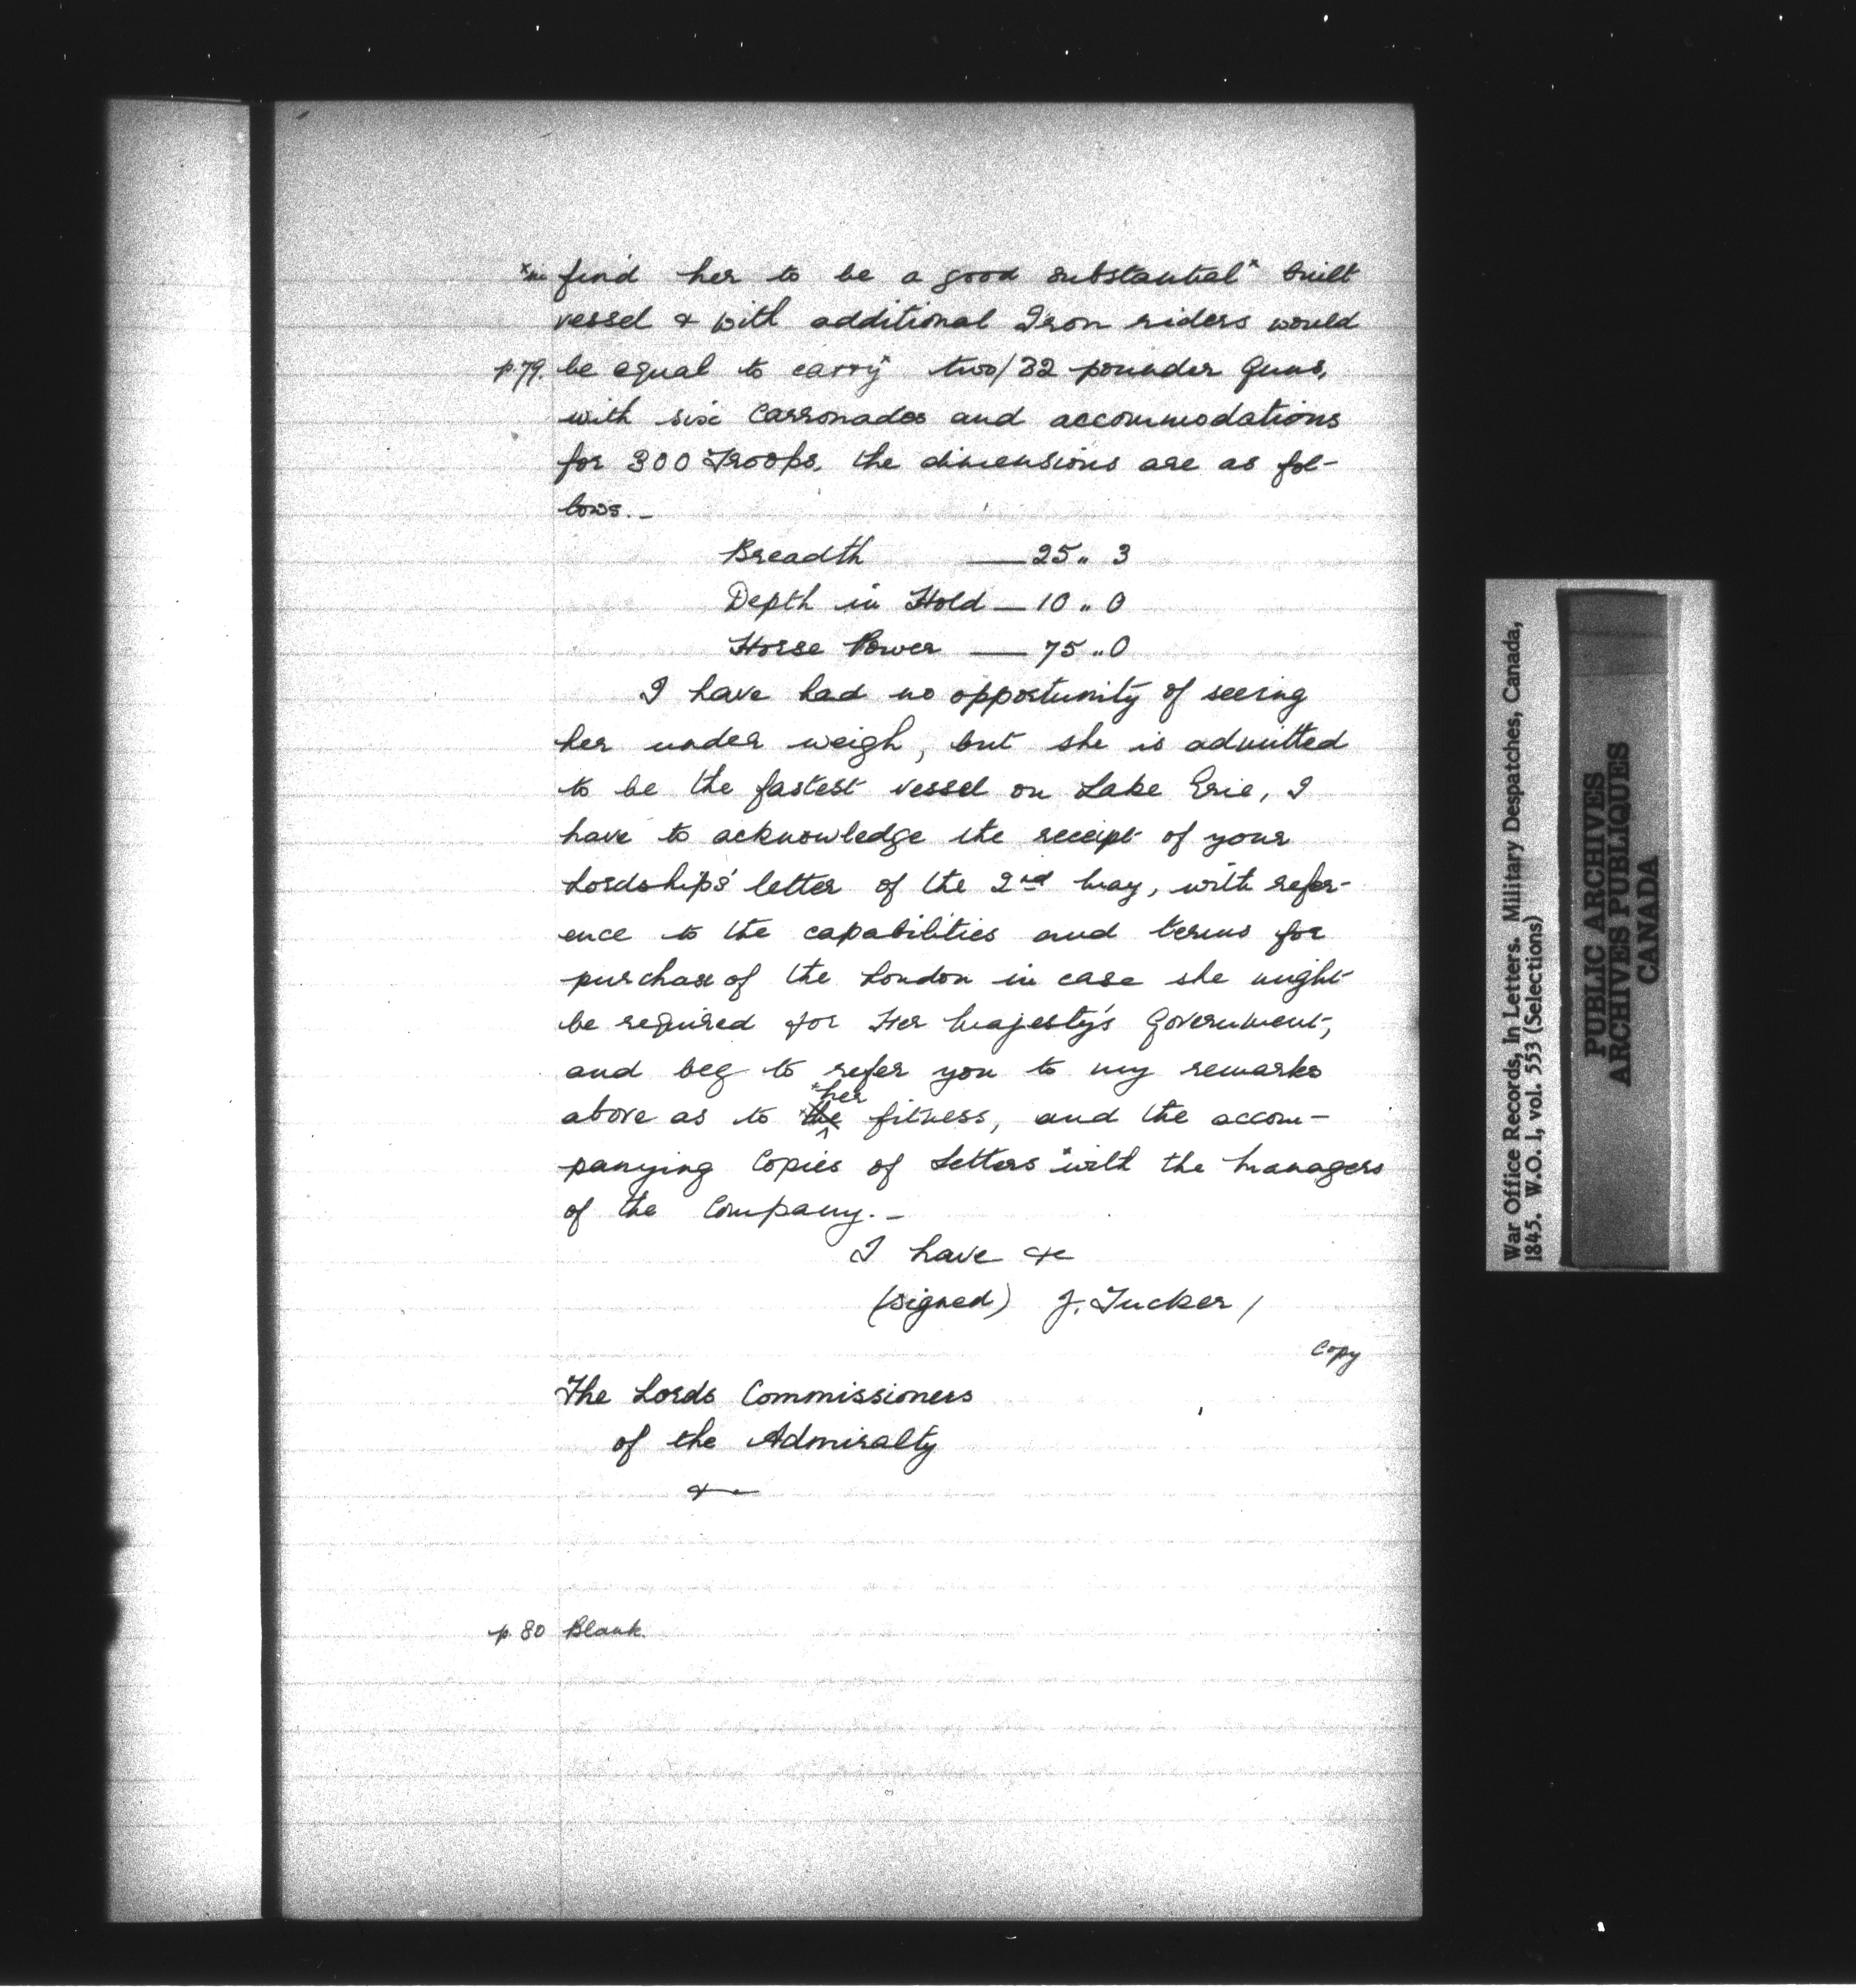 *sic find her to be a good substantial* built
vessel & with additional Iron riders would
p.79. be equal to carry* two/32 pounder Guns,
with six Carronades and accommodations
for 300 Troops, the dimensions are as fol-
lows._
Breadth — 25 „ 3
Depth in Hold — 10 „ 0
Horse Power — 75 „ 0
I have had no opportunity of seeing
her under weigh, but she is admitted
to be the fastest vessel on Lake Erie, I
have to acknowledge the receipt of your
Lordships' letter of the 2nd May, with refer-
ence to the capabilities and terms for
purchase of the London in case she might
be required for Her Majesty's Government,
and beg to refer you to my remarks
*her
above as to *the fitness, and the accom-
panying Copies of Letters *with the Managers
of the Company._
I have &c
(signed) J. Tucker /
Copy
The Lords Commissioners
of the Admiralty
&c
p. 80 Blank.
War Office Records, In Letters. Military Despatches, Canada,
1845. W.O. 1, vol. 553 (Selections)
PUBLIC ARCHIVES
ARCHIVES PUBLIQUES
CANADA